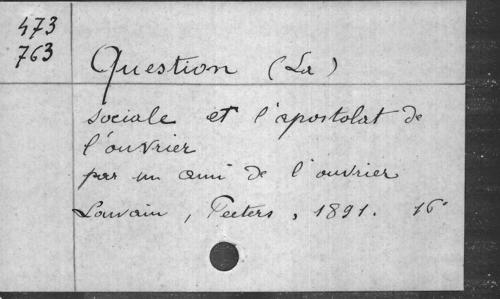 473
763
Question (La)
sociale et l'apostolat de
l'ouvrier
par un ami de l'ouvrier
Louvain, Peeters, 1891. 16°